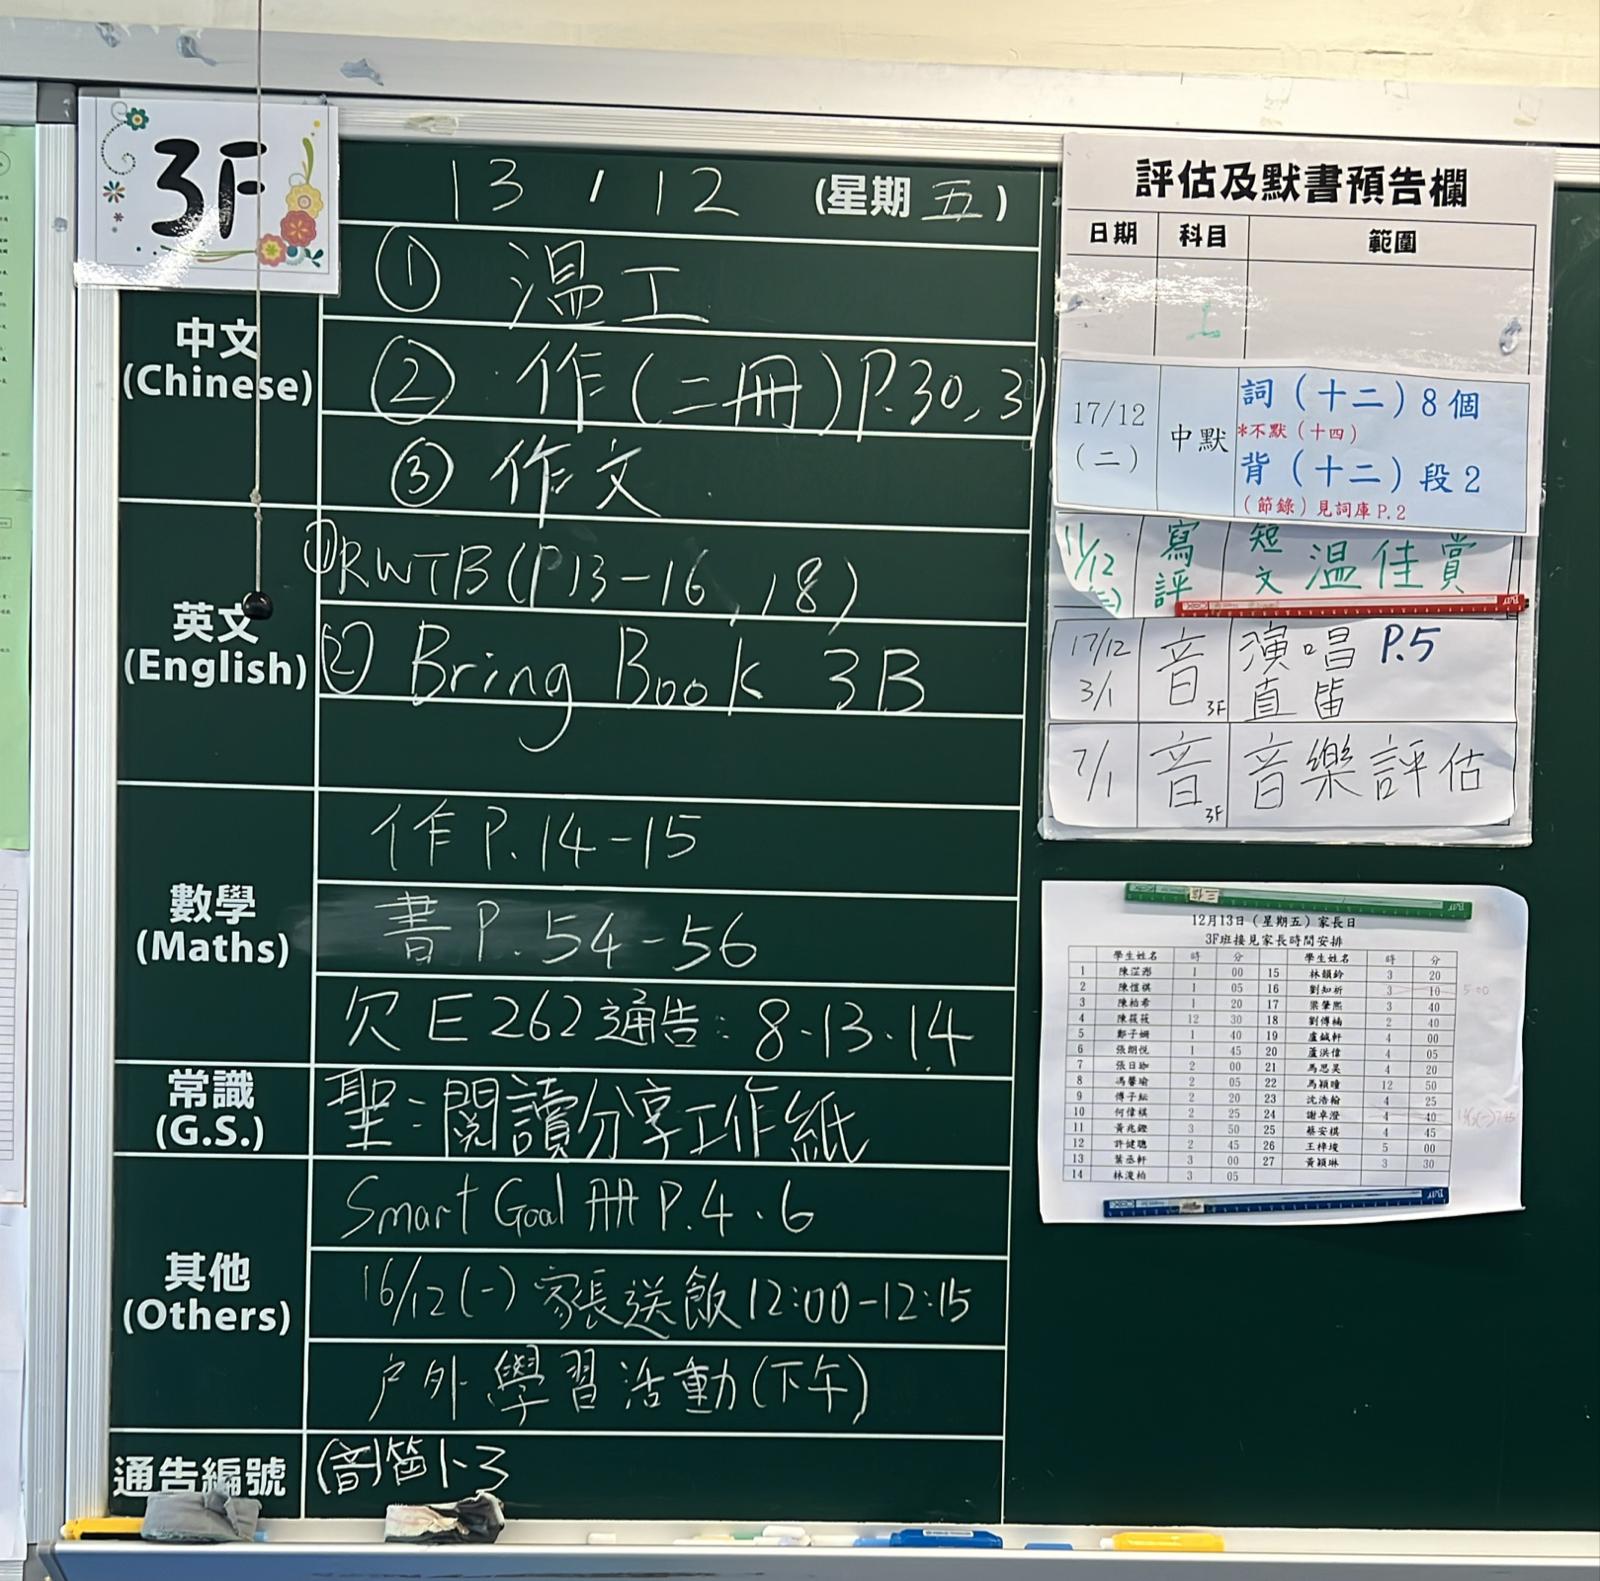 3F
13 / 12 (星期五)
中文
(Chinese)
① 溫工
② 作(二冊)P.30,31
③ 作文
英文
(English)
①RWTB(P13-16,18)
② Bring Book 3B
數學
(Maths)
作 P.14-15
書 P.54-56
欠 E262通告:8.13.14
常識
(G.S.)
聖:閱讀分享工作紙
其他
(Others)
Smart Goal 冊 P.4、6
16/12(一) 家長送飯12:00-12:15
户外學習活動(下午)
通告編號
(音)笛1-3
評估及默書預告欄
日期 科目 範圍
17/12
(二)
中默
詞(十二)8個
*不默(十四)
背(十二)段2
(節錄)見詞庫P.2
11/12
寫評
短文 溫佳賞
17/12
3/1
音 3F
演唱 P.5
直笛
7/1
音 3F
音樂評估
12月13日(星期五)家長日
3F班接見家長時間安排
學生姓名 時 分 學生姓名 時 分
1 1 00 15 3 20
2 1 05 16 劉知析 3 10
3 陳柏希 1 20 17 梁肇熙 3 40
4 陳筱筱 12 30 18 劉傅楠 2 40
5 鄭子姍 1 40 19 盧鋮軒 4 00
6 張朗悅 1 45 20 蘆洪偉 4 05
7 2 00 21 馬思昊 4 20
8 馮馨瑜 2 05 22 馬穎曈 12 50
9 2 20 23 沈浩翰 4 25
10 何偉祺 2 25 24 謝卓澄 4 40
11 黃兆鏗 3 50 25 蔡安祺 4 45
12 許健聰 2 45 26 王梓堎 5 00
13 葉丞軒 3 00 27 黃穎琳 3 30
14 林浚柏 3 05